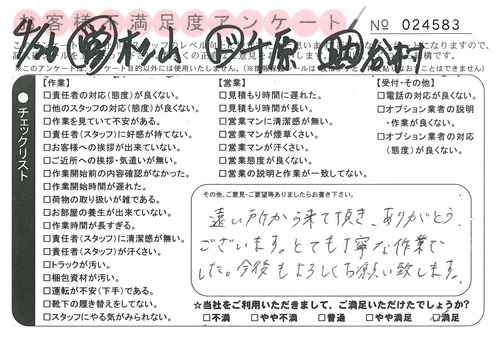 お客様不満足度アンケート
№ 024583
4/26 営 杉山 平原 谷村
チェックリスト
【作業】
□責任者の対応(態度)が良くない。
□他のスタッフの対応(態度)が良くない。
□作業を見ていて不安がある。
□責任者(スタッフ)に好感が持てない。
□お客様への挨拶が出来ていない。
□ご近所への挨拶・気遣いが無い。
□作業開始前の内容確認がなかった。
□作業開始時間が遅れた。
□荷物の取り扱いが雑である。
□お部屋の養生が出来ていない。
□作業時間が長すぎる。
□責任者(スタッフ)に清潔感が無い。
□責任者(スタッフ)が汗くさい。
□トラックが汚い。
□梱包資材が汚い。
□運転が不安(下手)である。
□靴下の履き替えをしてない。
□スタッフにやる気がみられない。
【営業】
□見積もり時間に遅れた。
□見積もり時間が長い。
□営業マンに清潔感が無い。
□営業マンが煙草くさい。
□営業マンが汗くさい。
□営業態度が良くない。
□営業の説明と作業が一致してない。
【受付・その他】
□電話の対応が良くない。
□オプション業者の説明
・作業が良くない。
□オプション業者の対応
(態度)が良くない。
その他、ご意見・ご要望等ありましたらお書き下さい。
遠い所から来て頂き、ありがとう
ございます。とても丁寧な作業で
した。今後もよろしくお願い致します。
☆当社をご利用いただきまして、ご満足いただけたでしょうか?
□不満 □やや不満 □普通 □やや満足 □満足